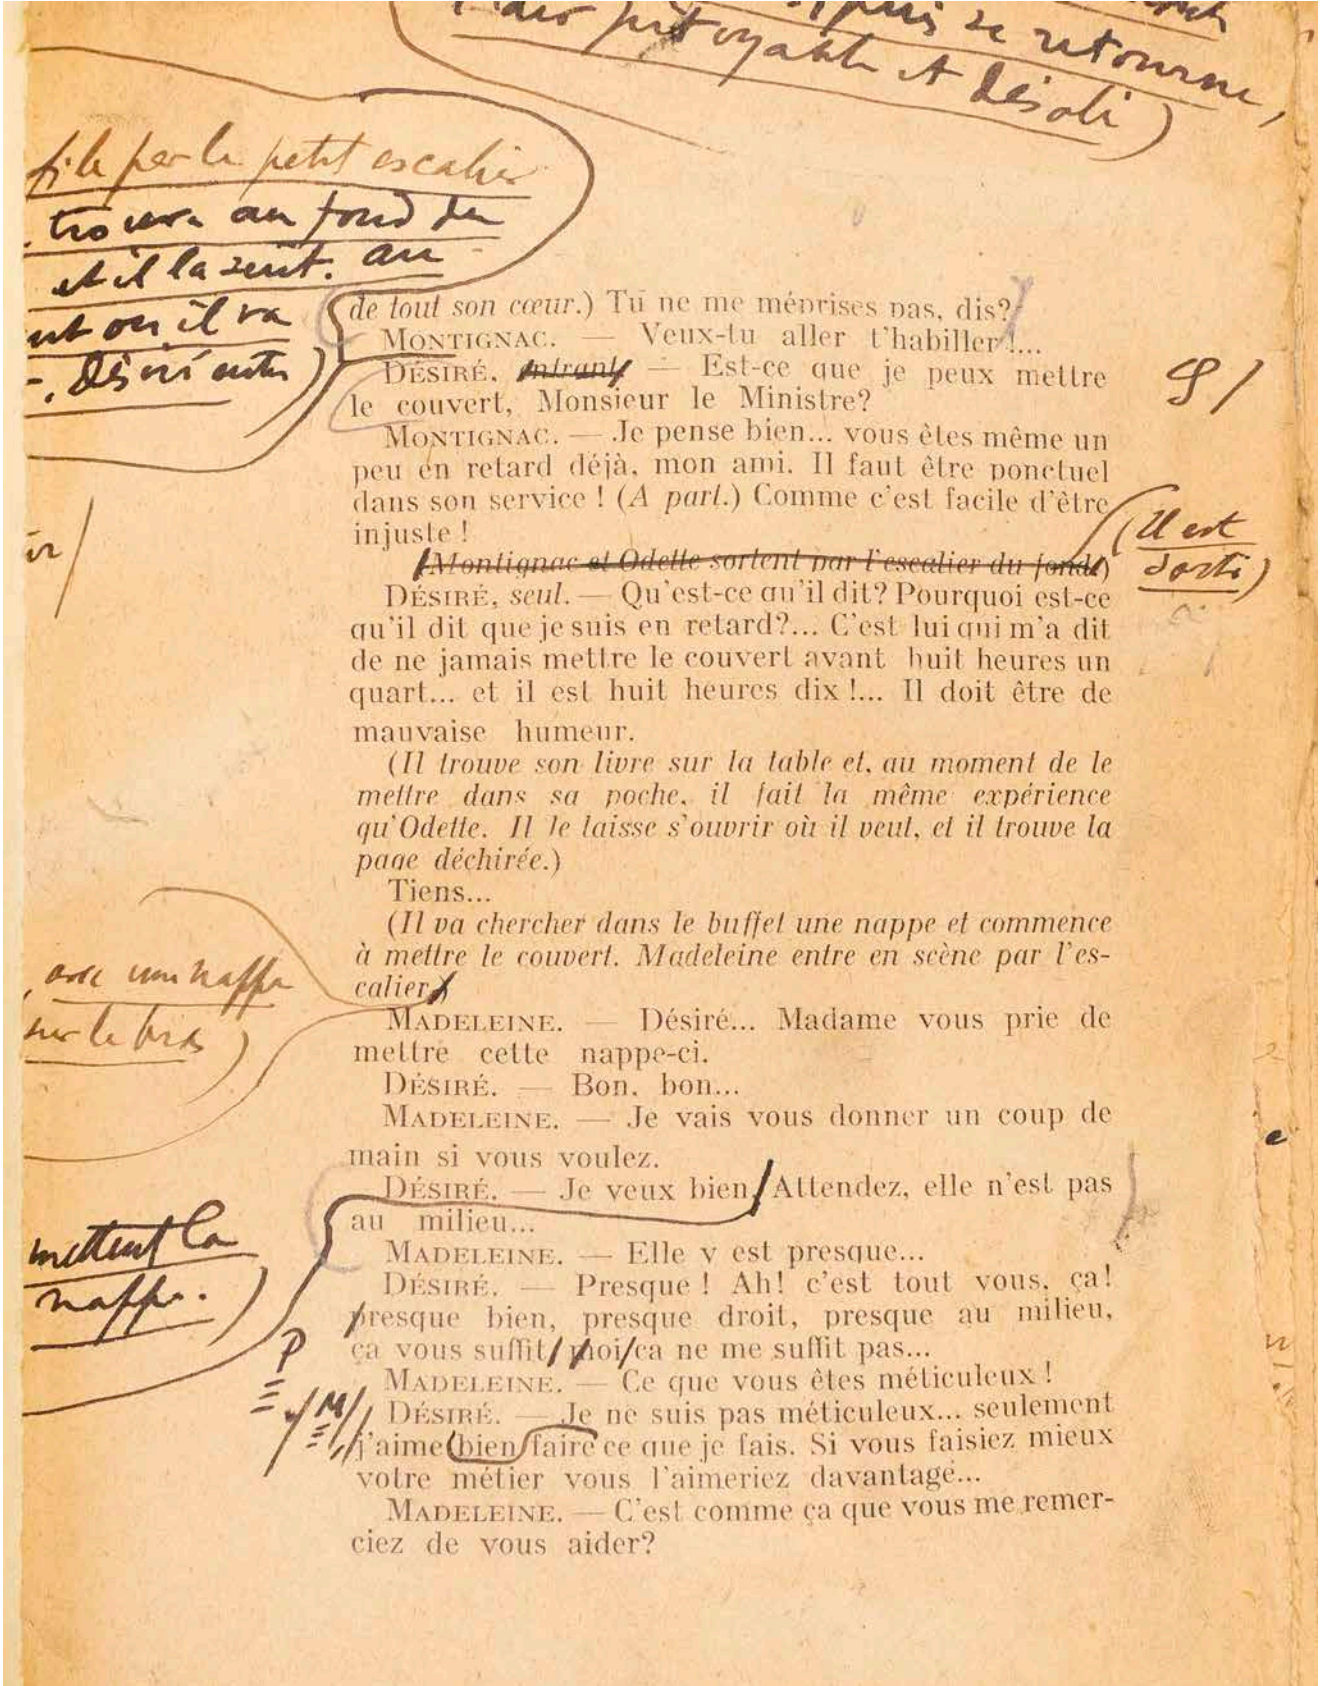 puis se retourne,
pitoyable et désolé)
file par le petit escalier
trouve au fond du
et il la sent. au
où il va
de tout son cœur.) Tu ne me méprises pas, dis?
MONTIGNAC. — Veux-tu aller t'habiller!...
DÉSIRÉ, entrant — Est-ce que je peux mettre
le couvert, Monsieur le Ministre?
MONTIGNAC. — Je pense bien... vous êtes même un
peu en retard déjà, mon ami. Il faut être ponctuel
dans son service ! (A part.) Comme c'est facile d'être
injuste !
(Il est
sorti)
(Montignac et Odette sortent par l'escalier du fond.)
DÉSIRÉ, seul. — Qu'est-ce qu'il dit? Pourquoi est-ce
qu'il dit que je suis en retard?... C'est lui qui m'a dit
de ne jamais mettre le couvert avant huit heures un
quart... et il est huit heures dix !... Il doit être de
mauvaise humeur.
(Il trouve son livre sur la table et, au moment de le
mettre dans sa poche, il fait la même expérience
qu'Odette. Il le laisse s'ouvrir où il veut, et il trouve la
page déchirée.)
Tiens...
(Il va chercher dans le buffet une nappe et commence
à mettre le couvert. Madeleine entre en scène par l'es-
calier
, avec une nappe
sur le bras)
MADELEINE. — Désiré... Madame vous prie de
mettre cette nappe-ci.
DÉSIRÉ. — Bon, bon...
MADELEINE. — Je vais vous donner un coup de
main si vous voulez.
DÉSIRÉ. — Je veux bien. Attendez, elle n'est pas
au milieu...
mettent la
nappe.)
MADELEINE. — Elle y est presque...
DÉSIRÉ. — Presque ! Ah! c'est tout vous, ça!
presque bien, presque droit, presque au milieu,
ça vous suffit moi ça ne me suffit pas...
P
MADELEINE. — Ce que vous êtes méticuleux !
M
DÉSIRÉ. — Je ne suis pas méticuleux... seulement
j'aime bien faire ce que je fais. Si vous faisiez mieux
votre métier vous l'aimeriez davantage...
MADELEINE. — C'est comme ça que vous me remer-
ciez de vous aider?